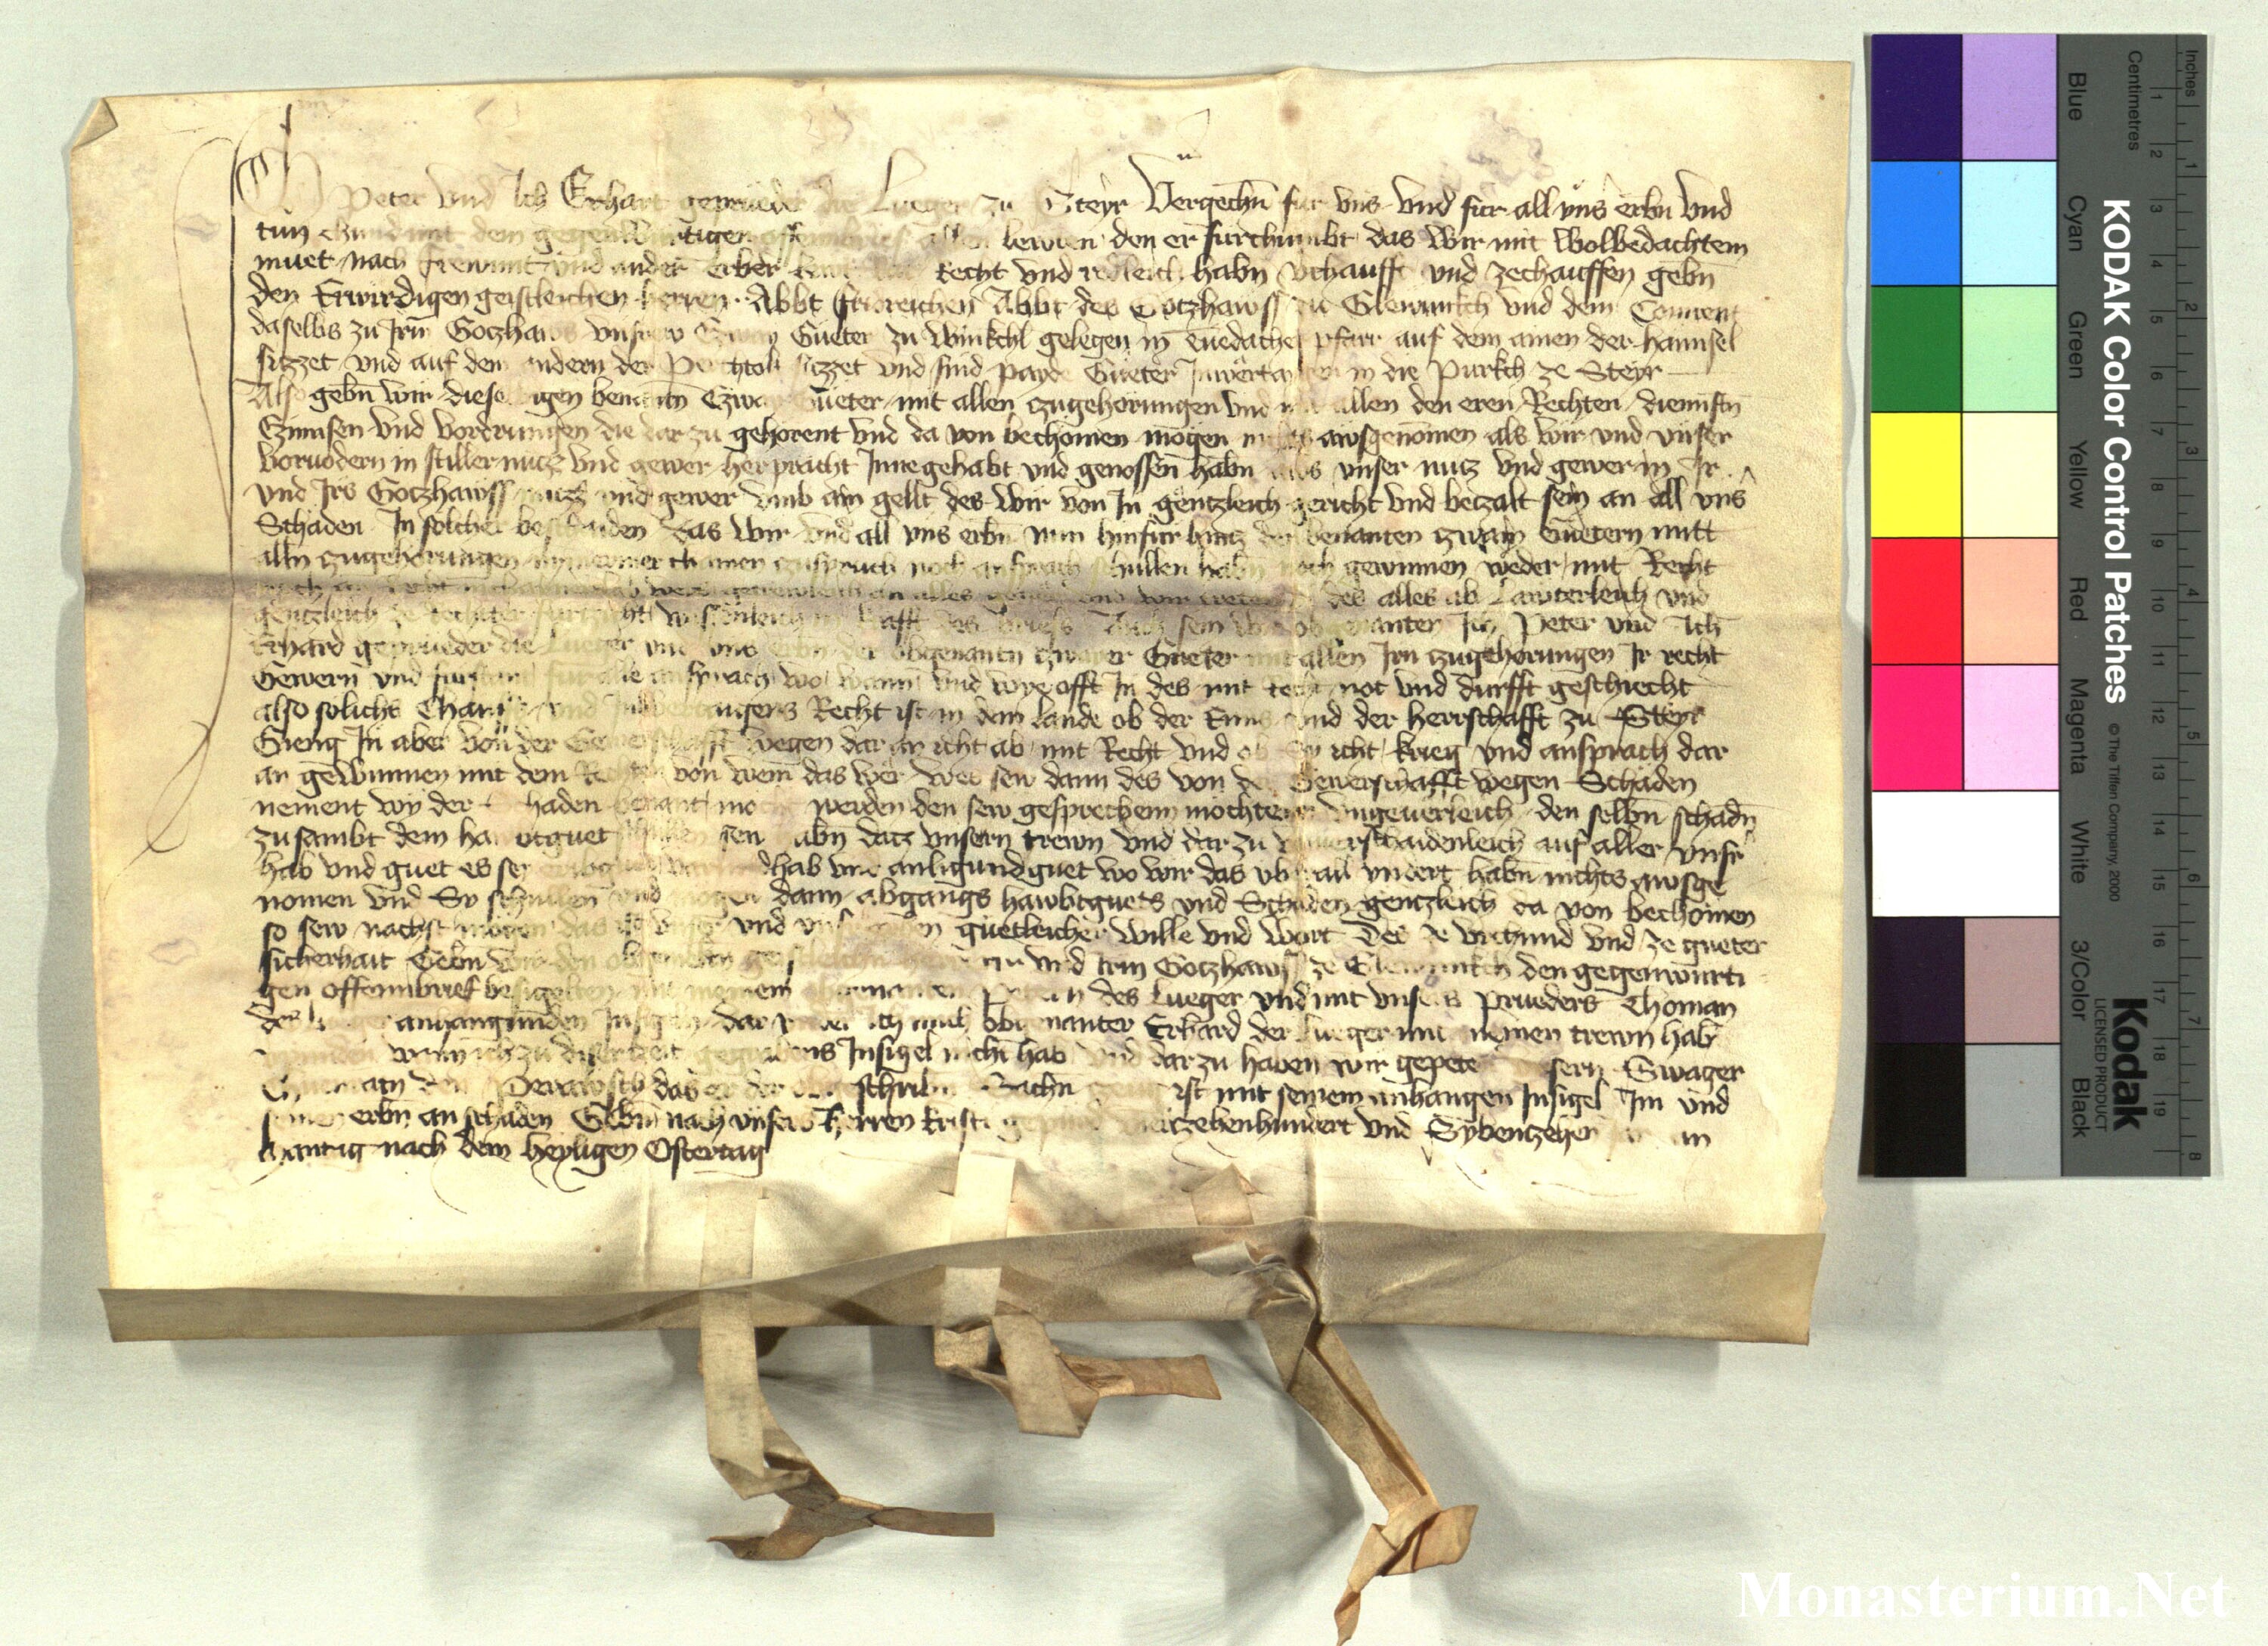 Ich Peter vnd Ich Erhart geprueder die Lueger zu Steyr Vergechn̄ fur vns vnd fur all vns̄ erbn̄ Vnd
tun chund mit dem gegenburtigen offennbrief allen lewten den er furchumbt das Wir mit Wolbedachtem
muet nach frewnt vnd ander erber Recht vnd redleich habn̄ vchaufft vnd zechauffen gebn̄
den Erwirdigen geistleichen herren Abbt fridreichen Abbt des Gotzhawss zu Glewnikch vnd dem Conuent
daselbs zu Irm̄ Gotzhaws vnser Czway Gueter zu Winkchl gelegen in pfarr auf dem ainen der Hannsel
sitzzet vnd auf dem andern der Perchtold sitzzet vnd sind payde Gueter in die Purkch ze Steyr
Also gebn̄ wir dieselbigen benantn̄ Czway Gueter mit allen zugehorungen vnd mit allen den eren Rechten diennstn̄
Czinnsen vnd vordrungen die dar zu gehorent vnd da von bechomen mogen nichts awsgenomen als wir vnd vnser
voruodern in stiller nutz vnd gewer herpracht Innegehabt vnd genossen habn̄ aws vnser nutz vnd gewer in Ir
vnd Irs Gotzhawss nutz vnd gewer vmb ain gellt des wir von In gentzleich gericht vnd betzalt sein an all vns̄
Schaden In solcher beschaiden das wir vnd all vns erbn̄ nun hinfur hintz den benanten zwain Guetern mitt
alln zugehorungen nymermer chainen zuspruch noch ansprach schullen habn̄ noch gewinnen weder mit Recht
noch an Recht des alles ab Lawterleich vnd
gentzleich ze rechter furtzicht wissenleich in krafft des briefs Auch sein wir obgenanter Ich Peter vnd Ich
Erhard geprueder die Lueger vnd vns erbn̄ der obgenantn̄ czwayer Gueter mit allen Irn zugehorungen Ir recht
Gewern̄ vnd fur alle ansprach wo wann vnd wye offt In des mit recht not vnd durfft geschiecht
also solichs Chauffs vnd Recht ist in dem lande ob der Enns vnd der herrschafft zu Steyr
Gieng In aber von der Gewerschafft wegen dar an icht ab mit Recht vnd ob Sy icht krieg vnd ansprach dar
an gewunnen mit dem Rechten von wem̄ das wer wes sew dann des von der Gewerschafft wegen Schaden
nement wy der Schaden benant mocht werden den sew gesprechenn mochten vngeuerleich den selbn̄ schadn̄
zusambt dem hawbtguet schullen sew habn datz vnsern trewn vnd dar zu vnuerschaidenleich auf aller vnsr̄
hab vnd guet es sey erbguet varund hab vnd anligund guet wo wir das vberall yndert habn̄ nichts awsge
nomen vnd Sy schullen vnd mogen dann abgangs hawbtguets vnd Schaden gentzleich da von bechomen
so sew nachst mogen das ist vnser vnd vnser erben guetleicher Wille vnd Wort Des ze vrchund vnd ze gueter
sicherhait Gebn̄ wir den obgenanten geistleichen herrn vnd irm Gotzhawss ze Glewnikch den gegenwurti
gen offennbrief besigelten mit meinem obgenanten Petern des Lueger vnd mit vnsers prueders Thoman
des Lueger anhangunden Insigeln dar vnder ich mich obgenanter Erhard der Lueger mit meinen trewn hab
verpunden wann ich zu diser tzeit gegrabens Insigel nicht hab vnd dar zu haben wir gepeten vnsern Swager
das er der schribn Sachn ist mit seinem anhangen Insigel Im vnd
seinen erbn̄ an schaden Gebn̄ nach vnsers herren kristi gepurd viertzehenhundert vnd Sybentzehen Jar am
Mantig nach dem heyligen Ostertag
KODAK Color Control Patches
© The Tiffen Company, 2000
Kodak
LICENSED PRODUCT
Inches
Centimetres
Blue Cyan Green Yellow Red Magenta White 3/Color Black
1 2 3 4 5 6 7 8 9 10 11 12 13 14 15 16 17 18 19
1 2 3 4 5 6 7 8
Monasterium.Net